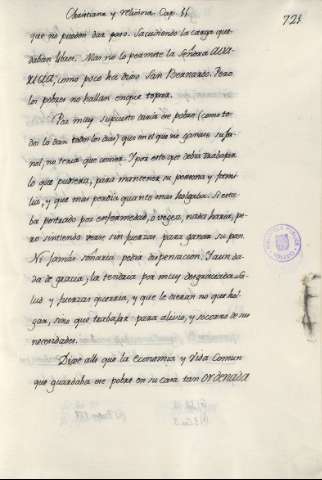 Christiana y Maxima Cap. 31
723
que no pueden dar paso. Sacudiendo la carga que-
daban libres. Mas no lo permite la Señora AVA-
RICIA, como poco ha dixo San Bernardo. Pero
los pobres no hallan en que topar.
Por muy supuesto daria ese pobre (como to-
dos lo dan todos los dias) que en el que no ganara su jor-
nal, no tenia que comer. Y por esto que debia trabajar
lo que pudiera, para mantener su persona y fami-
lia, y que mas perdia quanto mas holgaba. Si esta-
ba postrado por enfermedad, o vegez, nada haria, pe-
ro sintiendo verse sin fuerzas para ganar su pan.
No jamás soñaria pedir dispensacion. Y aun da-
da de gracia, la tendria por muy desgraciada. Sa-
lud y fuerzas queria, y que le dieran no que hol-
gar, sino que trabajar para alivio, y socorro de sus
necesidades.
Dixe alli que la Economia y Vida Comun
que guardaba ese pobre en su casa tan ordenada